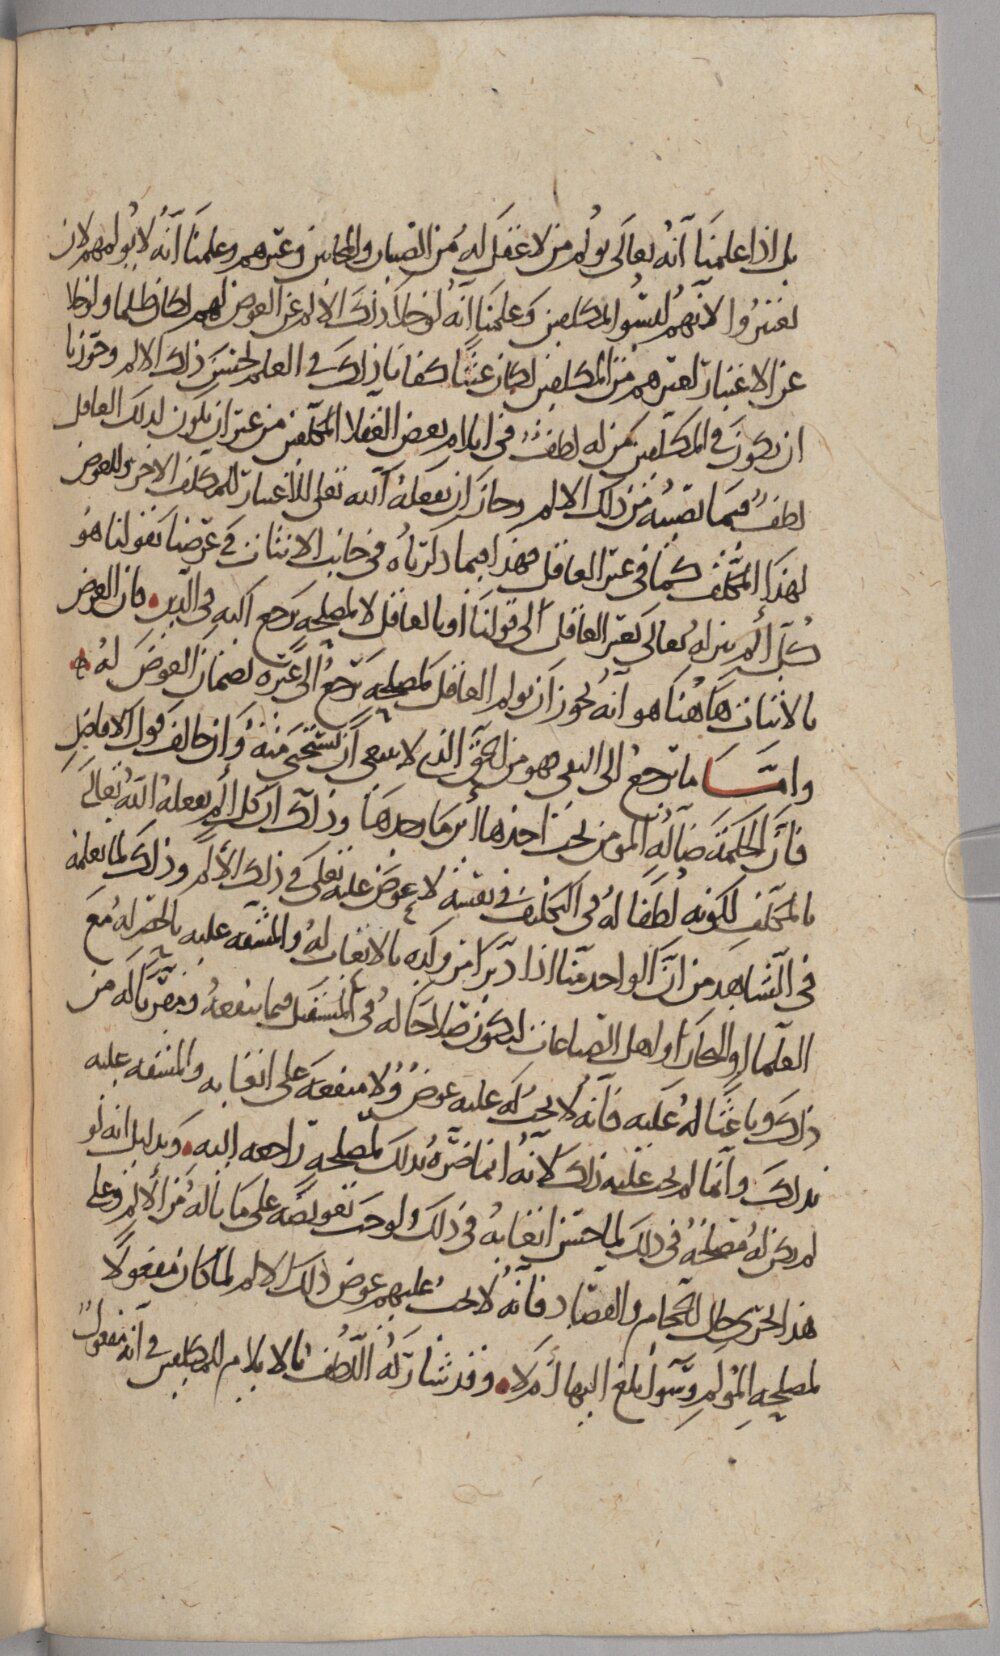 بل اذا علمنا أنه تعالى يولم من لا عقل له من الصبيان والمجانين وغيرهم وعلمنا أنه لا يولمهم لان
يعتبروا لأنهم ليسوا بمكلفين وعلمنا أنه لو خلا ذلك الالم عن العوض لهم لكان ظلما ولو خلا
عن الاعتبار لغيرهم من المكلفين لكان عبثا كفانا ذلك في العلم بحسن ذلك الالم وجوزنا
ان يكون في المكلفين من له لطف في ايلام بعض العقلا المكلفين من غير ان يكون لذلك العاقل
لطف فيما نصيبه من ذلك الالم وجاز ان يفعله الله تعالى للاعتبار للمكلف الاخر وللعوض
لهذا المكلف كما في غير العاقل فهذا فيما ذكرناه في جانب الاثبات في غرضنا بقولنا هو
كل ألم ينزله تعالى بغير العاقل الى قولنا او بالعاقل لا لمصلحة يرجع اليه في الدين فان الغرض
بالاثبات هاهنا هو أنه يجوز ان يولم العاقل لمصلحة ترجع الى غيره لضمان العوض له
وامـا ما ترجع الى النفي فهو من الحق الذي لا ينبغي ان يستحيى منه وان خالف قول الافاضل
فان الحكمة ضالة المؤمن بحيث احدها أين ما وجدها وذلك ان كل ألم يفعله الله تعالى
بالمكلف لكونه لطفا له في التكليف في نفسه لا عوض عليه تعالى في ذلك الألم وذلك لما نعلمه
في الشاهد من ان الواحد منا اذا دبر امر ولده بالاتعاب له والمشقة عليه بالحضر له مع
العلما او الحكما او اهل الصناعات ليكون صلاحا له في المستقبل فيما ينفعه ومقربا له من
ذلك وباعثا له عليه فانه لا يجب له عليه عوض ولا منفعة على اتعابه والمشقة عليه
بذلك وانما لم يجب عليه ذلك لانه انما ضره بذلك لمصلحة راجعة اليه وبدليل انه لو
لم يكن له مصلحة في ذلك لما حسن اتعابه في ذلك ولوجب تعويضه على ما ناله من الألم وعلى
هذا يجرى حال الحجام والفصاد فانه لا يجب عليهم عوض ذلك الالم لما كان مفعولا
لمصلحة المؤلم وسوا بلغ اليها أم لا وقد شاركه اللطف بالالام للمكلفين في أنه مفعول